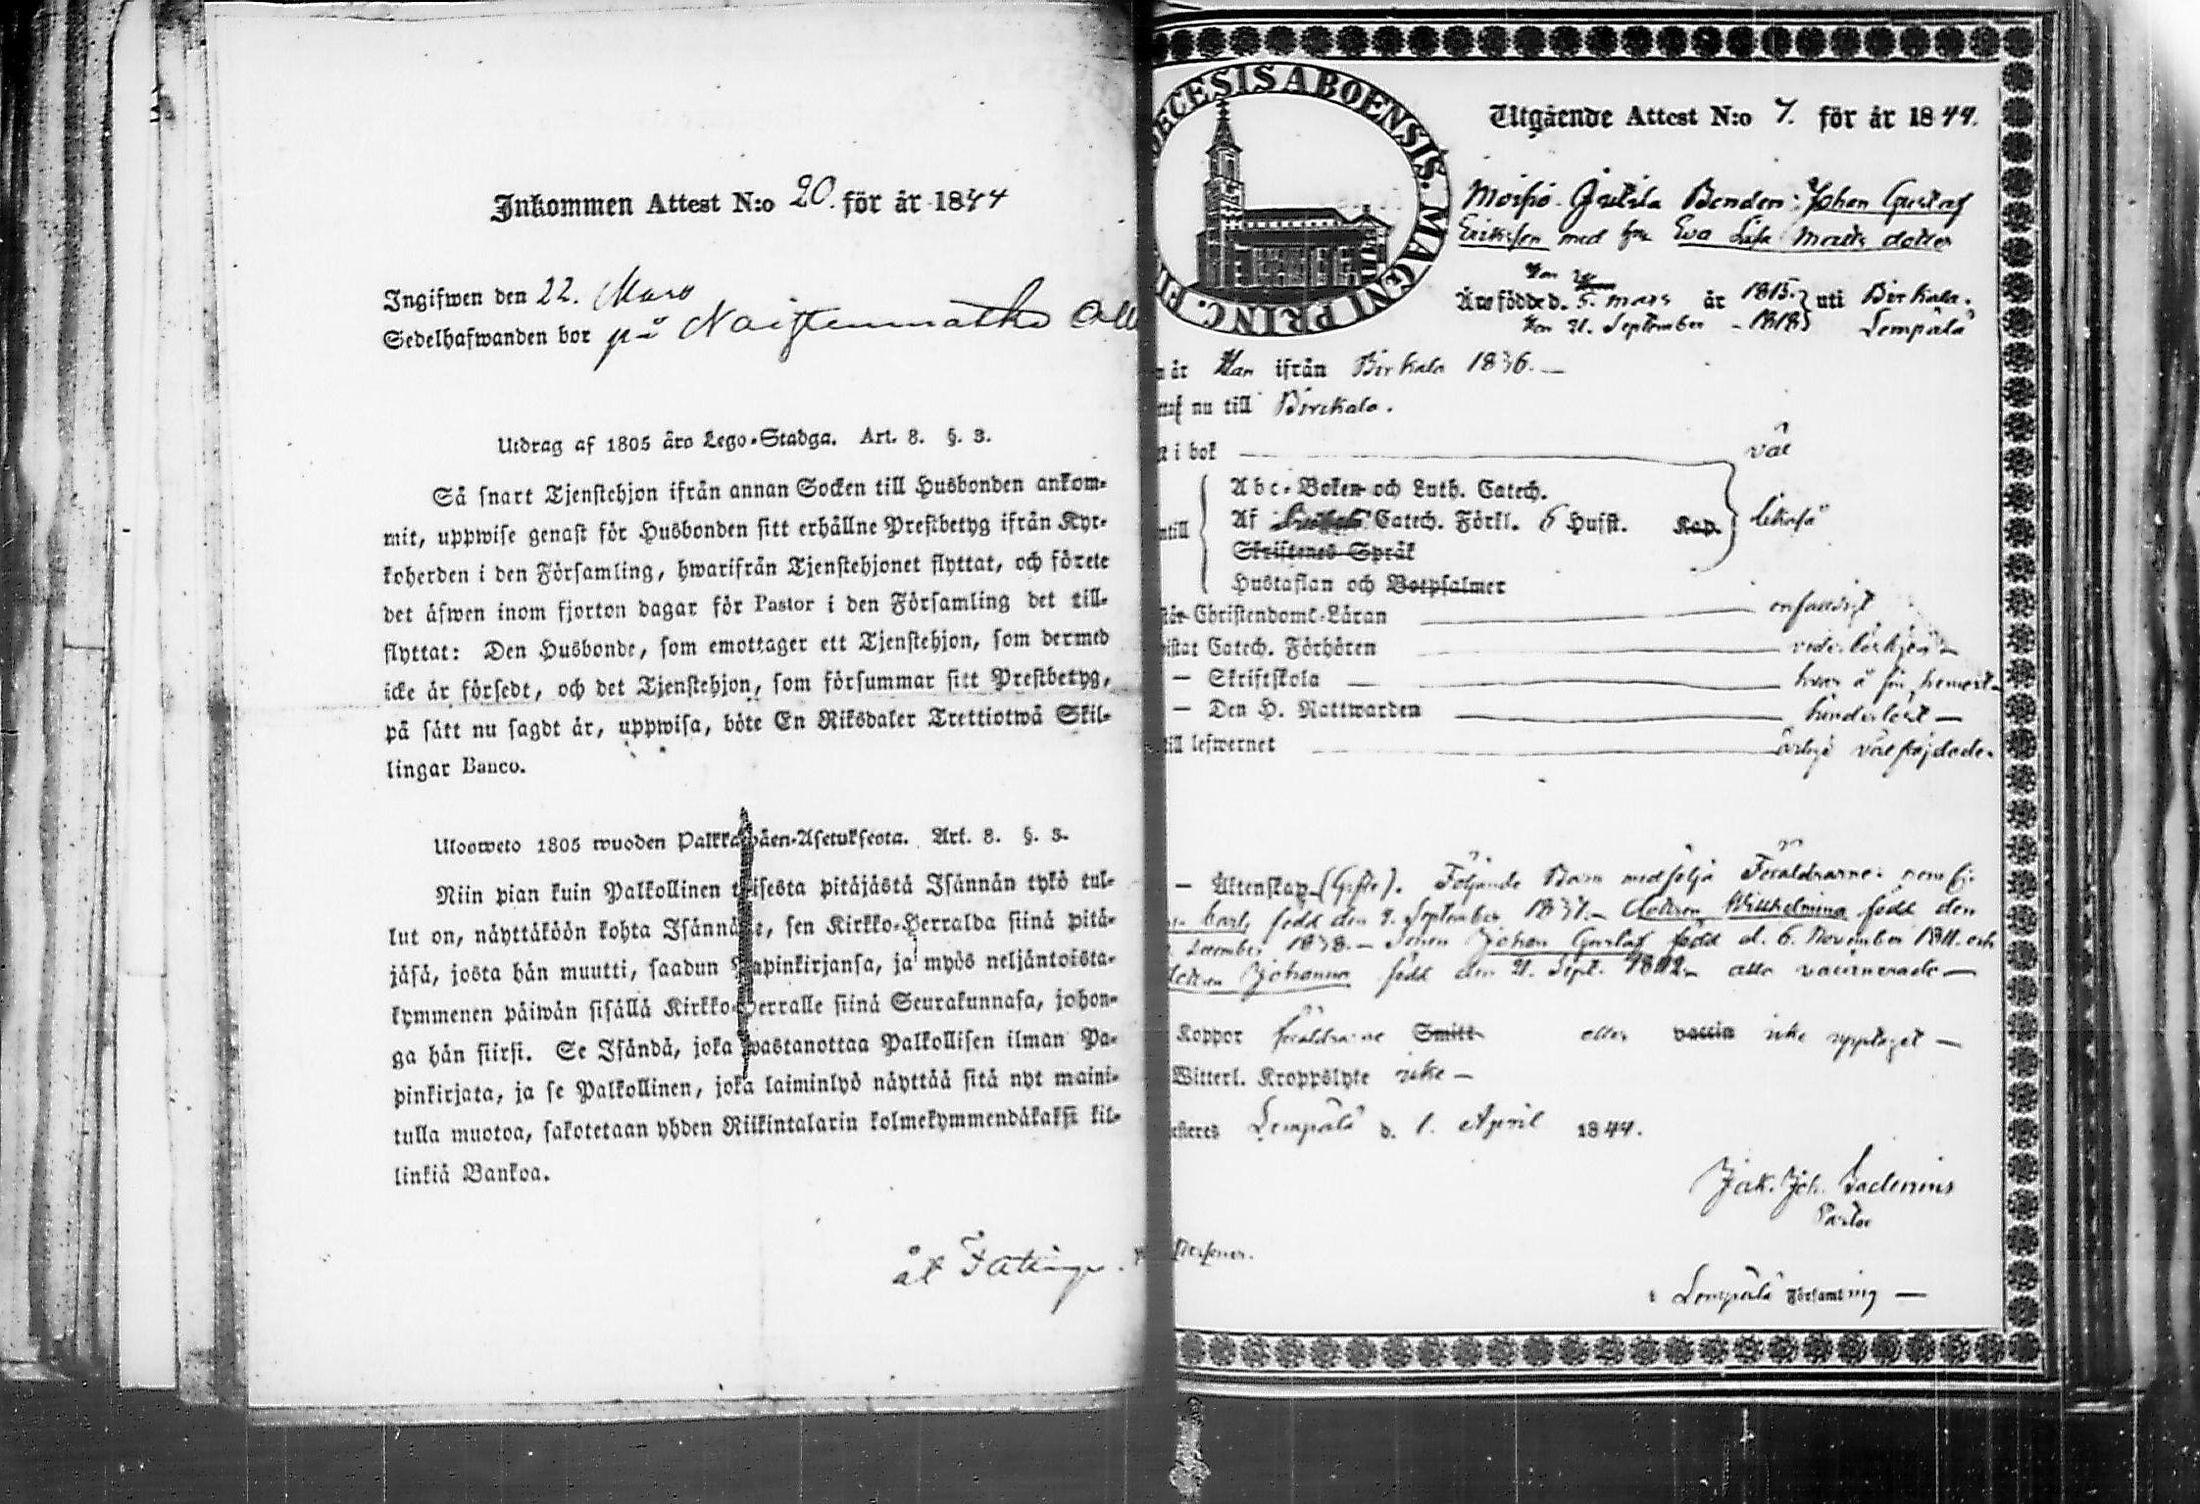 Inkommen Attest N:o 20. för år 1844
Ingifwen den 22. Mars
Sedelhafwanden bor på Naistenmatka
Utdrag af 1805 års Lego-Stadga. Art. 8. §. 3.
Så snart Tjenstehjon ifrån annan Socken till Husbonden ankom-
mit, uppwise genast för Husbonden sitt erhållne Prestbetyg ifrån Kyr-
koherden i den Församling, hwarifrån Tjenstehjonet flyttat, och förete
det äfwen inom fjorton dagar för Pastor i den Församling det till-
flyttat: Den Husbonde, som emottager ett Tjenstehjon, som dermed
icke är försedt, och det Tjenstehjon, som försummar sitt Prestbetyg,
på sätt nu sagdt är, uppwisa, böte En Riksdaler Trettiotwå Skil-
lingar Banco.
Ulosweto 1805 wuoden Palkkawäen-Asetuksesta. Art. 8. §. 3.
Niin pian kuin Palkollinen toisesta pitäjästä Isännän tykö tul-
lut on, näyttäköön kohta Isännälle, sen Kirkko-Herralda siinä pitä-
jäsä, josta hän muutti, saadun Papinkirjansa, ja myös neljäntoista-
kymmenen päiwän sisällä Kirkko-Herralle siinä Seurakunnasa, johon-
ga hän siirsi. Se Isändä, joka wastanottaa Palkollisen ilman Pa-
pinkirjata, ja se Palkollinen, joka laiminlyö näyttää sitä nyt maini-
tulla muotoa, sakotetaan yhden Riikintalarin kolmekymmendäkaksi kil-
linkiä Bankoa.
ECESIS ABOENSIS. MAGNI PRINC. FI
Utgående Attest N:o 7. för år 1844.
Bonden Johan Gustaf
Eriksson med Eva Lisa Matts dotter
Äro födde d. 5. mars år 1815. uti Birkala.
21. September - 1818 Lempälä
är Han ifrån Birkala 1836. —
nu till Birckala.
t i bok väl
Abc-Boken och Luth. Catech.
Af Catech. Förkl. 6 Hufst. Kap. likaså
ntill
Skriftenes Språk
Hustaflan och Botpsalmer
Christendoms-Läran
istat Catech. Förhören
— Skriftskola
— Den H. Nattwarden
till lefwernet
— Äktenskap (Gifte). Följande Barn medfölja Föräldrarne:
Carl, född den September 1837. — Wilhelmina född den
December 1838. — Sonen Johan Gustaf född d. 6. November och
Johanna född den 21. Sept. 1842 — alla vaccinerade —
Koppor föräldrarne Smitt eller vaccin icke upptaget —
Witterl. Kroppslyte icke —
esteres Lempälä d. 1. April 1844.
Jak. Joh.
Pastor
åt
Personer.
i Lempälä Församling —